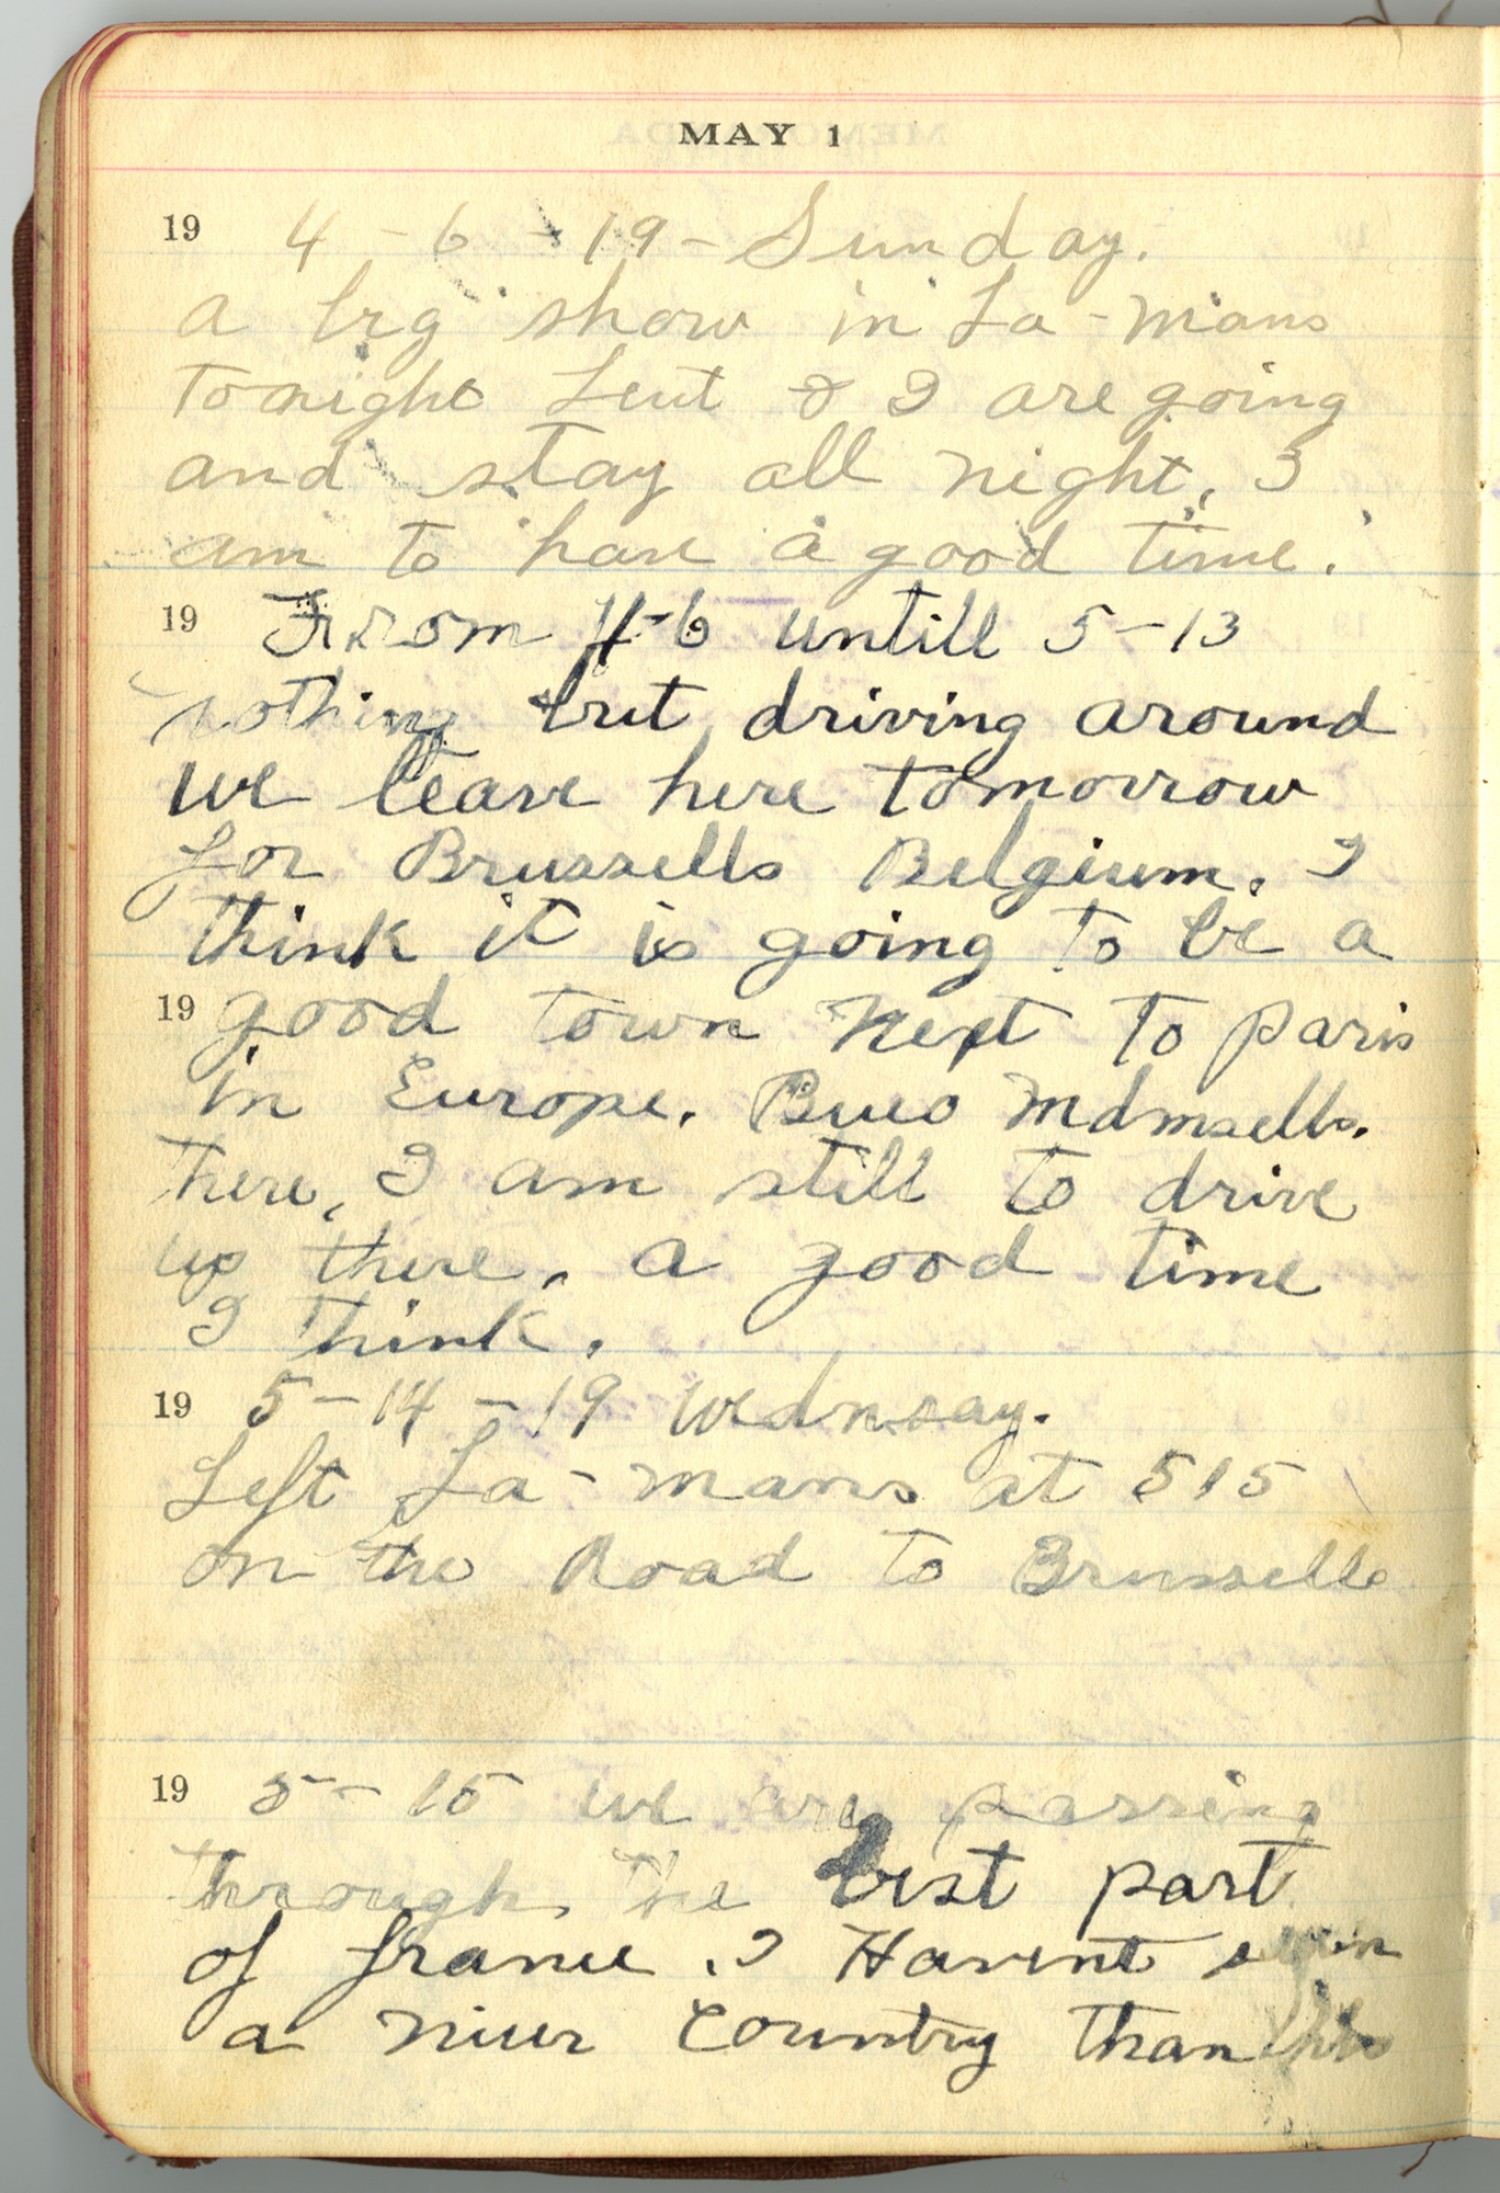 MAY 1
19 4-6-19-Sunday.
a big show in La-Mans
Tonight Leut & I are going
and stay all night, I
am to have a good time.
19 From 4-6 untill 5-13
nothing but driving around
we leave here tomorrow
for Brussells Belgium. I
think it is going to be a
19 good town next to Paris
in Europe. Buco Mdmsells.
there, I am still to drive
up there. a good time
I think.
19 5-14-19 Wednsay.
Left La-mans at 515
on the Road to Brussells
19 5-15 we are passing
through the best part
of france. I Havent seen
a nicer Country than this